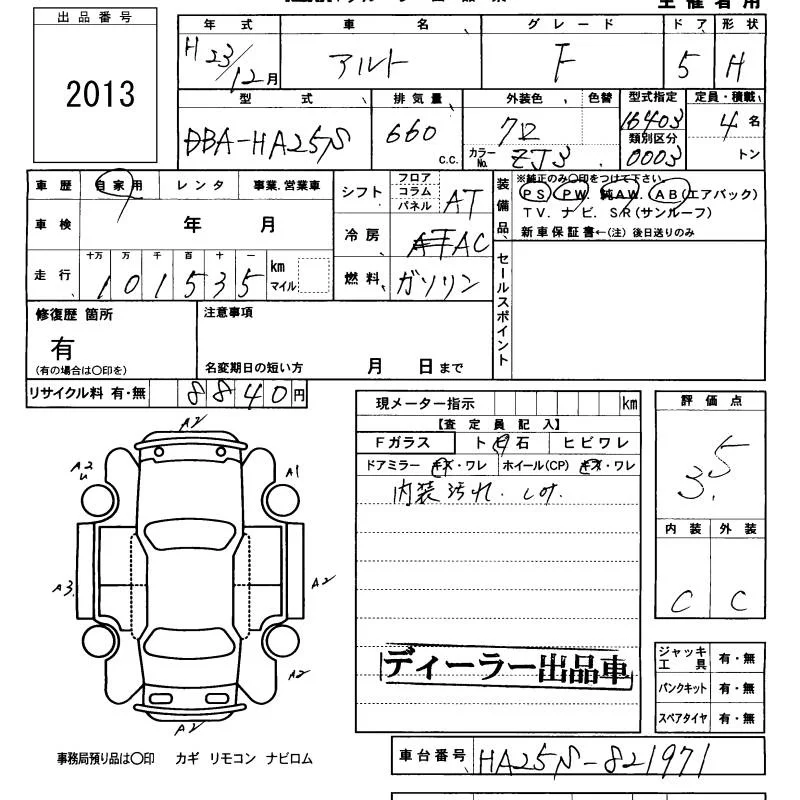 出品番号
2013
年式 車名 グレード ドア 形状
H 23/12月 アルト F 5 H
型式 排気量 外装色 色替 型式指定 定員・積載
DBA-HA25S 660 c.c. 7D カラーNo. ZJ3 16403 類別区分 0003 4名 トン
車歴 自家用 レンタ 事業.営業車
車検 年 月
走行 十万 万 千 百 十 一
101535 km マイル
シフト フロア コラム パネル AT
冷房 AT AC
燃料 ガソリン
装備品
※純正のみ〇印をつけて下さい。
PS PW 純AW. AB(エアバック)
TV. ナビ. SR(サンルーフ)
新車保証書←(注)後日送りのみ
セールスポイント
修復歴 箇所
有
(有の場合は〇印を)
注意事項
名変期日の短い方 月 日まで
リサイクル料 有・無 8840円
A2
A2
U
A1
A3
A2
A2
A2
事務局預り品は〇印 カギ リモコン ナビロム
現メーター指示 km
【査定員記入】
Fガラス ト日石 ヒビワレ
ドアミラー キズ・ワレ ホイール(CP) キズ・ワレ
内装汚れ.
ディーラー出品車
評価点
3.5
内装 外装
C C
ジャッキ工具 有・無
パンクキット 有・無
スペアタイヤ 有・無
車台番号 HA25S-821971